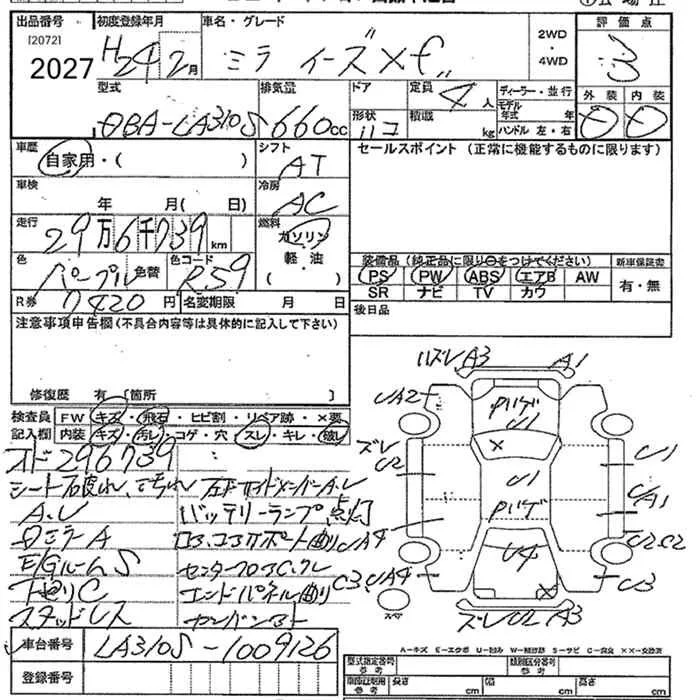 出品番号
[2072]
2027
初度登録年月
H24 2月
車名・グレード
ミラ イース"Xf"
2WD
・
4WD
評価点
3
型式
DBA-LA310S
排気量
660cc
ドア
形状
ハコ
定員
4人
積載
kg
ディーラー・並行
モデル
年式 年
ハンドル 左・右
外装
内装
車歴
自家用・( )
シフト
AT
セールスポイント (正常に機能するものに限ります)
車検
年 月( 日)
冷房
AC
走行
29万6千739km
燃料
ガソリン
軽・油
( )
色
パープル
色替
色コード
R59
装備品 (純正品に限り○をつけてください)
新車保証書
PS PW ABS エアB AW
SR ナビ TV カワ
有・無
R券
7420円
名変期限 月 日
後日品
注意事項申告欄(不具合内容等は具体的に記入して下さい)
修復歴 有 [箇所 ]
検査員
記入欄
FW キズ・飛石・ヒビ割・リペア跡・×要
内装 キズ・汚レ・コゲ・穴・スレ・キレ・破レ
オド296739
シート破れ、汚れ
A.U
ロミラーA
E/GルームS
下廻りC
スタッドレス
バッテリーランプ点灯
コアサポート曲り
センターフロアC
エンドパネル曲り
ハズレA3
A1
UA2
パリゲ
U1
ズレ
U2
X
U1
U1
UA1
パリゲ
UA4
U4
U2 C2
C3、UA4
X
C3
スペア
ズレU2 A3
車台番号
LA310S-1009126
登録番号
A-キズ E-エクボ U-凹み W-補修跡 S-サビ C-腐食 ××-交換済
型式指定番号
参考
類別区分番号
参考
車庫証明用
参考
長さ cm
幅 cm
高さ cm